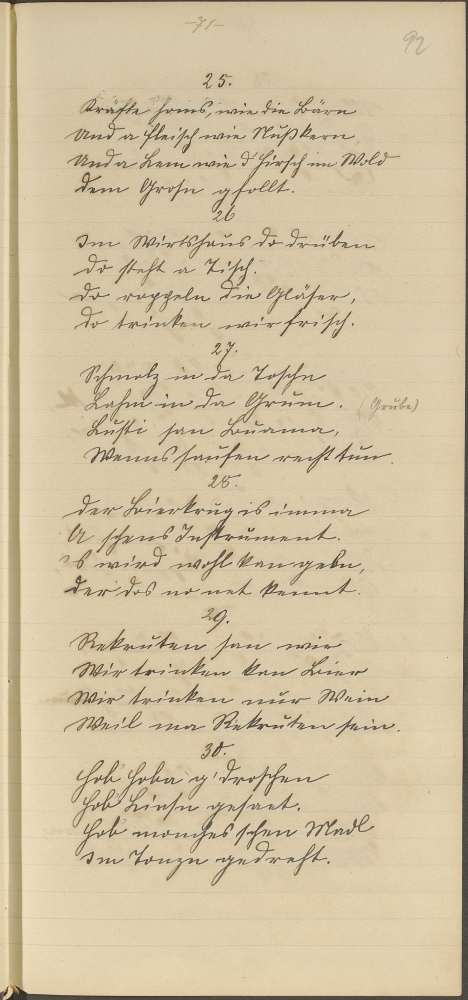 -71-
92
25.
Kräfte homs, wie die Bärn
Und a Fleisch wie Nußkern
Und a Lem wie d' Hirsch im Wold
Dem Grosn gfollt.
26
Im Wirtshaus do drüben
Do steht a Tisch.
Do rappeln die Gläser,
Do trinken wir frisch.
27.
Schmolz in da Toschn
Lahm in da Grum. (Grube)
Lusti san Buama,
Wenns saufen recht tun.
28.
Der Bierkrug is imma
A schens Instrument.
's wird wohl kan gebn,
Der dos no net kennt.
29.
Rekruten san wir
Wir trinken kan Bier
Wir trinken nur Wein
Weil ma Rekruten sein.
30.
Hob Hoba g'droschen
Hob Linsn gesaet.
Hob monches schen Madl
Im Tonzn gedreht.